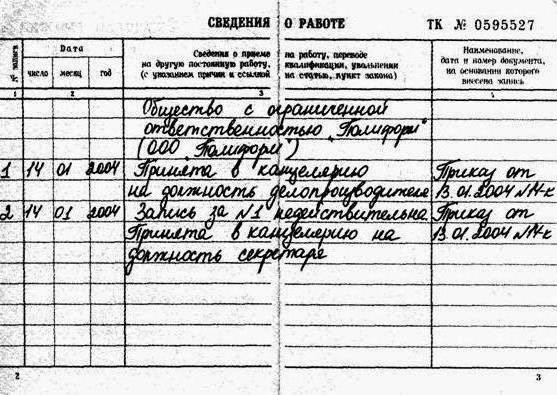 СВЕДЕНИЯ О РАБОТЕ ТК № 0595527
№ записи
Дата
число месяц год
Сведения о приеме на работу, переводе
на другую постоянную работу, квалификации, увольнении
(с указанием причин и ссылкой на статью, пункт закона)
Наименование,
дата и номер документа,
на основании которого
внесена запись
1 2 3 4
Общество с ограниченной
ответственностью „Полиформ"
(ООО „Полиформ")
1 14 01 2004 Принята в канцелярию Приказ от
на должность делопроизводителя 13.01.2004 №14-к
2 14 01 2004 Запись за №1 недействительна Приказ от
Принята в канцелерию на 13.01.2004 №14-к
должность секретаре
2 3